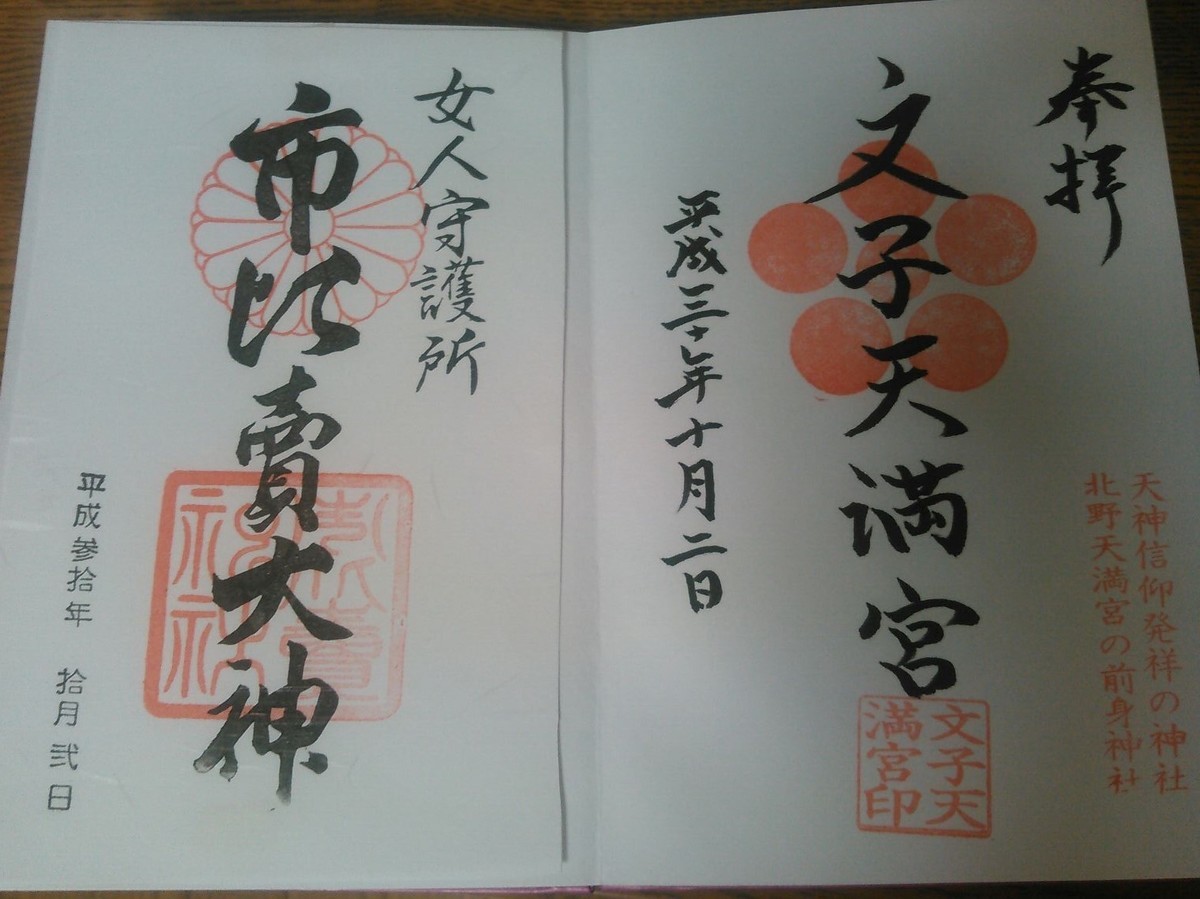 奉拝
天神信仰発祥の神社
北野天満宮の前身神社
文子天満宮
文子天
満宮印
平成三十年十月二日
女人守護所
市比賣大神
平成参拾年 拾月弐日